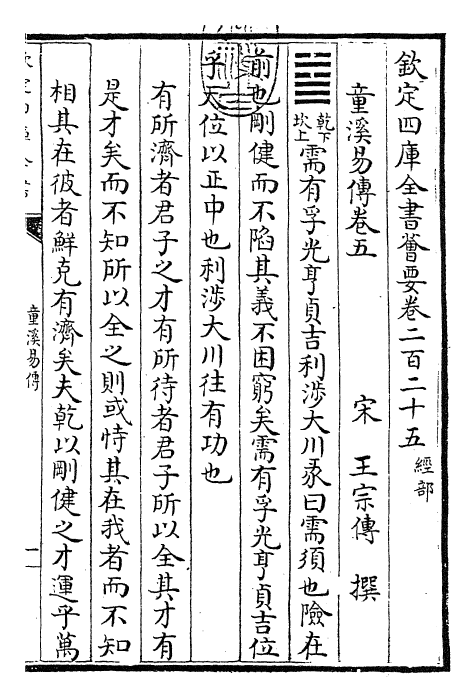 欽定四庫全書薈要卷二百二十五 經部
童溪易傳卷五
宋 王宗傳 撰
䷄ 乾下坎上 需有孚光亨貞吉利涉大川彖曰需須也險在
前也剛健而不陷其義不困窮矣需有孚光亨貞吉位
乎天位以正中也利涉大川往有功也
有所濟者君子之才有所待者君子所以全其才有
是才矣而不知所以全之則或恃其在我者而不知
相其在彼者鮮克有濟矣夫乾以剛健之才運乎萬
童溪易傳
一